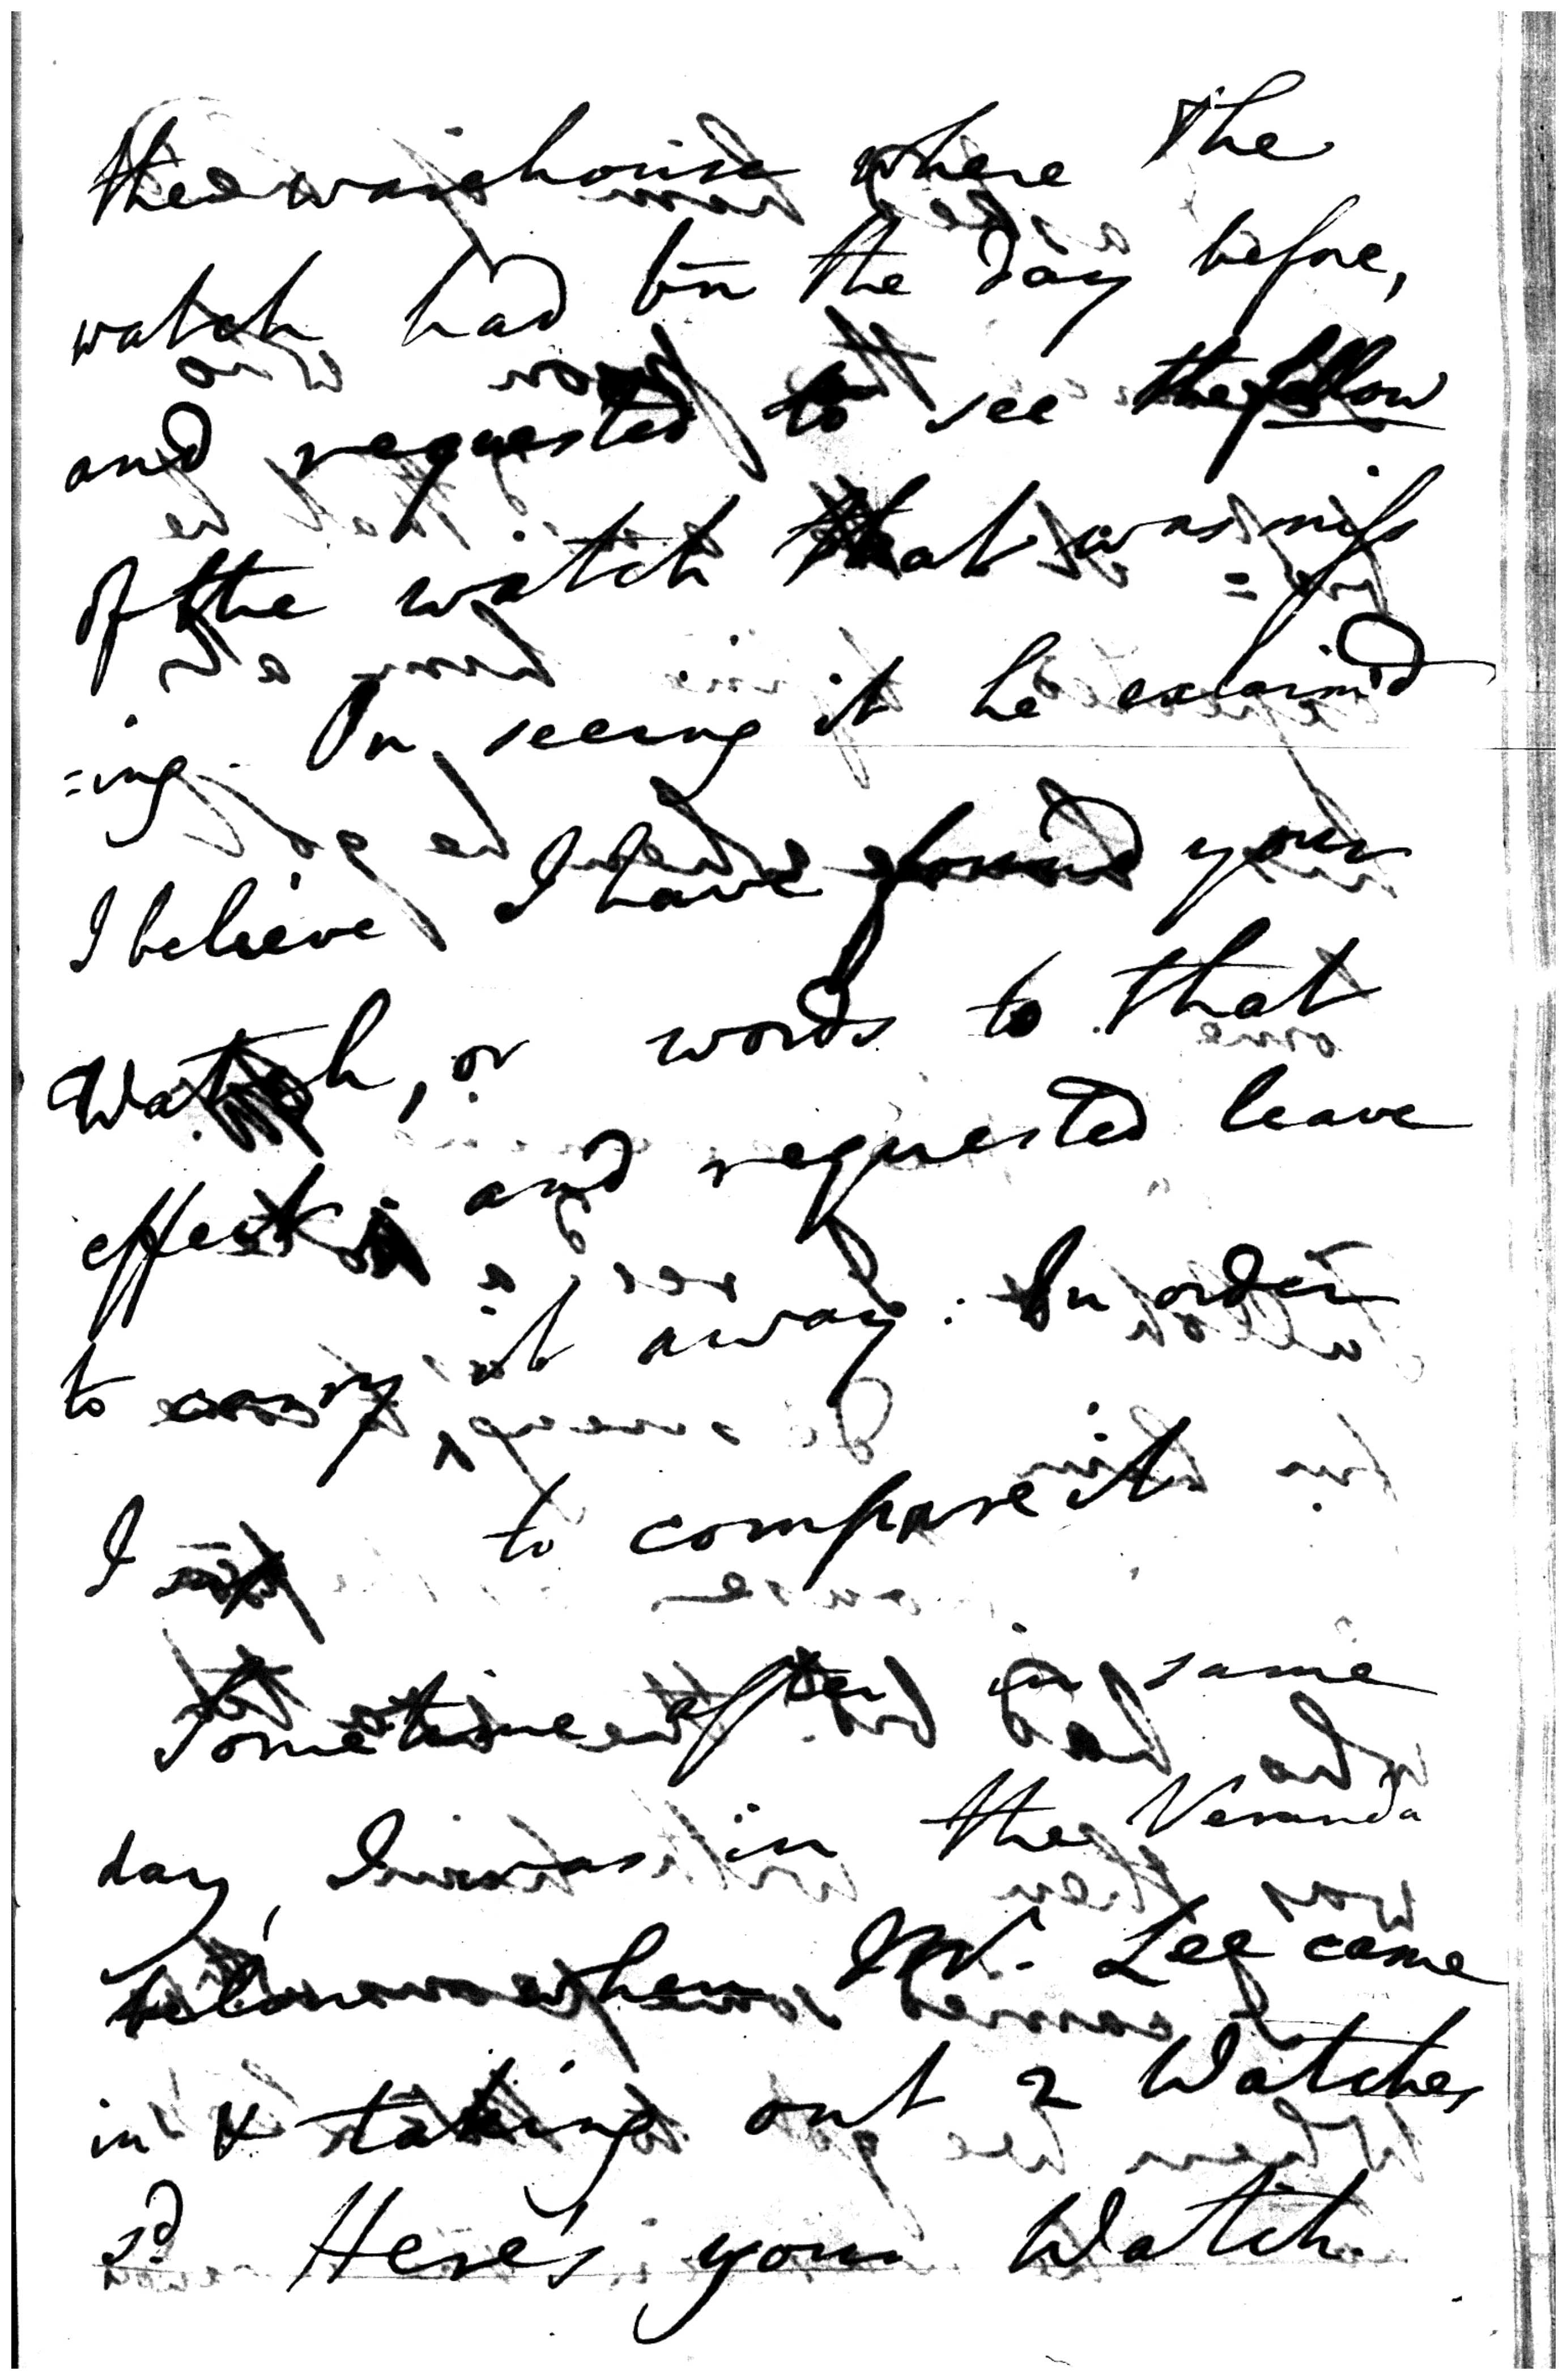 the warehouse where the
watch had bn the day before,
and requested to see the fellow
of the watch that was miss
=ing. On seeing it he exclaim'd
I believe I have found your
Watch, or words to that
effect and requested leave
to carry it away. In order
I to compare it
Sometime after in same
day, I was in the Veranda
below when Mr. Lee came
in & taking out 2 Watches
sd. Here's your Watch.